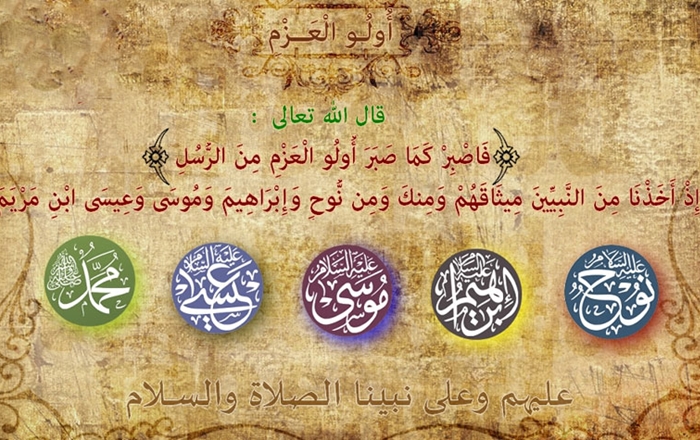 أُولُـو الْعَـزْمِ
قال الله تعالى :
﴿فَاصْبِرْ كَمَا صَبَرَ أُولُو الْعَزْمِ مِنَ الرُّسُلِ﴾
إِذْ أَخَذْنَا مِنَ النَّبِيِّينَ مِيثَاقَهُمْ وَمِنكَ وَمِن نُّوحٍ وَإِبْرَاهِيمَ وَمُوسَى وَعِيسَى ابْنِ مَرْيَمَ
نوح عليه السلام
إبراهيم عليه السلام
موسى عليه السلام
عيسى عليه السلام
محمد صلى الله عليه وسلم
عليهم وعلى نبينا الصلاة والسـلام